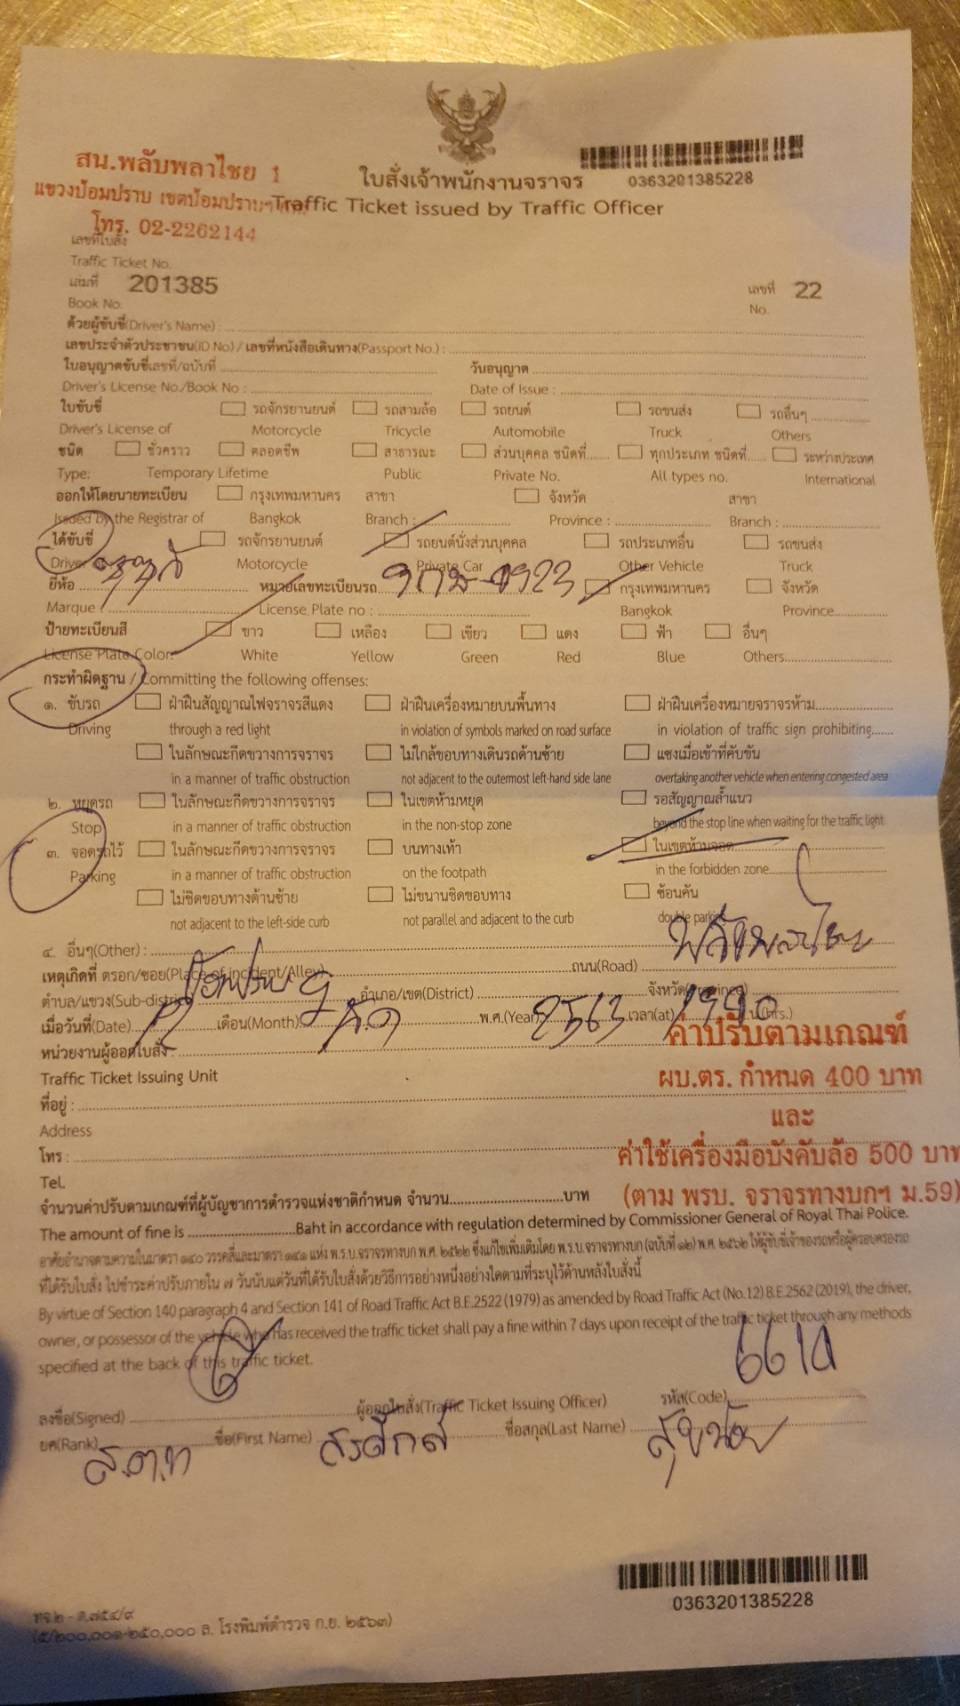 สน.พลับพลาไชย 1
แขวงป้อมปราบ เขตป้อมปราบฯ
โทร. 02-2262144
0363201385228
ใบสั่งเจ้าพนักงานจราจร
Traffic Ticket issued by Traffic Officer
เลขที่ใบสั่ง
Traffic Ticket No.
เล่มที่ 201385 เลขที่ 22
Book No. No.
ด้วยผู้ขับขี่(Driver's Name) :
เลขประจำตัวประชาชน(ID No.) / เลขที่หนังสือเดินทาง(Passport No.) :
ใบอนุญาตขับขี่เลขที่/ฉบับที่ วันอนุญาต
Driver's License No./Book No : Date of Issue :
ใบขับขี่ รถจักรยานยนต์ รถสามล้อ รถยนต์ รถขนส่ง รถอื่นๆ
Driver's License of Motorcycle Tricycle Automobile Truck Others
ชนิด ชั่วคราว ตลอดชีพ สาธารณะ ส่วนบุคคล ชนิดที่ ทุกประเภท ชนิดที่ ระหว่างประเทศ
Type: Temporary Lifetime Public Private No. All types no. International
ออกให้โดยนายทะเบียน กรุงเทพมหานคร สาขา จังหวัด สาขา
Issued by the Registrar of Bangkok Branch : Province : Branch :
ได้ขับขี่ รถจักรยานยนต์ รถยนต์นั่งส่วนบุคคล รถประเภทอื่น รถขนส่ง
Driver Motorcycle Private Car Other Vehicle Truck
ยี่ห้อ หมายเลขทะเบียนรถ กรุงเทพมหานคร จังหวัด
Marque : License Plate no : Bangkok Province
ป้ายทะเบียนสี ขาว เหลือง เขียว แดง ฟ้า อื่นๆ
License Plate Color: White Yellow Green Red Blue Others
กระทำผิดฐาน / Committing the following offenses:
๑. ขับรถ ฝ่าฝืนสัญญาณไฟจราจรสีแดง ฝ่าฝืนเครื่องหมายบนพื้นทาง ฝ่าฝืนเครื่องหมายจราจรห้าม
Driving through a red light in violation of symbols marked on road surface in violation of traffic sign prohibiting
ในลักษณะกีดขวางการจราจร ไม่ใกล้ขอบทางเดินรถด้านซ้าย แซงเมื่อเข้าที่คับขัน
in a manner of traffic obstruction not adjacent to the outermost left-hand side lane overtaking another vehicle when entering congested area
๒. หยุดรถ ในลักษณะกีดขวางการจราจร ในเขตห้ามหยุด รอสัญญาณล้ำแนว
Stop in a manner of traffic obstruction in the non-stop zone beyond the stop line when waiting for the traffic light
๓. จอดรถไว้ ในลักษณะกีดขวางการจราจร บนทางเท้า ในเขตห้ามจอด
Parking in a manner of traffic obstruction on the footpath in the forbidden zone
ไม่ชิดขอบทางด้านซ้าย ไม่ขนานชิดขอบทาง ซ้อนคัน
not adjacent to the left-side curb not parallel and adjacent to the curb double parking
๔. อื่นๆ(Other) :
เหตุเกิดที่ ตรอก/ซอย(Place of incident/Alley) ถนน(Road) พลับพลาไชย
ตำบล/แขวง(Sub-district) ป้อมปราบ อำเภอ/เขต(District) จังหวัด(Province)
เมื่อวันที่(Date) เดือน(Month) พ.ศ.(Year) 2563 เวลา(at) น.(hrs.)
หน่วยงานผู้ออกใบสั่ง :
Traffic Ticket Issuing Unit
ที่อยู่ :
Address
โทร :
Tel.
ค่าปรับตามเกณฑ์
ผบ.ตร. กำหนด 400 บาท
และ
ค่าใช้เครื่องมือบังคับล้อ 500 บาท
(ตาม พรบ. จราจรทางบกฯ ม.59)
จำนวนค่าปรับตามเกณฑ์ที่ผู้บัญชาการตำรวจแห่งชาติกำหนด จำนวน บาท
The amount of fine is Baht in accordance with regulation determined by Commissioner General of Royal Thai Police.
อาศัยอำนาจตามความในมาตรา ๑๔๐ วรรคสี่และมาตรา ๑๔๑ แห่ง พ.ร.บ.จราจรทางบก พ.ศ. ๒๕๒๒ ซึ่งแก้ไขเพิ่มเติมโดย พ.ร.บ.จราจรทางบก (ฉบับที่ ๑๒) พ.ศ. ๒๕๖๒ ให้ผู้ขับขี่เจ้าของรถหรือผู้ครอบครองรถ
ที่ได้รับใบสั่ง ไปชำระค่าปรับภายใน ๗ วันนับแต่วันที่ได้รับใบสั่งด้วยวิธีการอย่างหนึ่งอย่างใดตามที่ระบุไว้ด้านหลังใบสั่งนี้
By virtue of Section 140 paragraph 4 and Section 141 of Road Traffic Act B.E.2522 (1979) as amended by Road Traffic Act (No.12) B.E.2562 (2019), the driver,
owner, or possessor of the vehicle who has received the traffic ticket shall pay a fine within 7 days upon receipt of the traffic ticket through any methods
specified at the back of this traffic ticket.
ลงชื่อ(Signed) ผู้ออกใบสั่ง(Traffic Ticket Issuing Officer) รหัส(Code)
ยศ(Rank) ส.ต.ท ชื่อ(First Name) ชื่อสกุล(Last Name) สุขน้อย
0363201385228
(๕/๒๐๐,๐๐๑-๒๕๐,๐๐๐ ล. โรงพิมพ์ตำรวจ ก.ย. ๒๕๖๓)